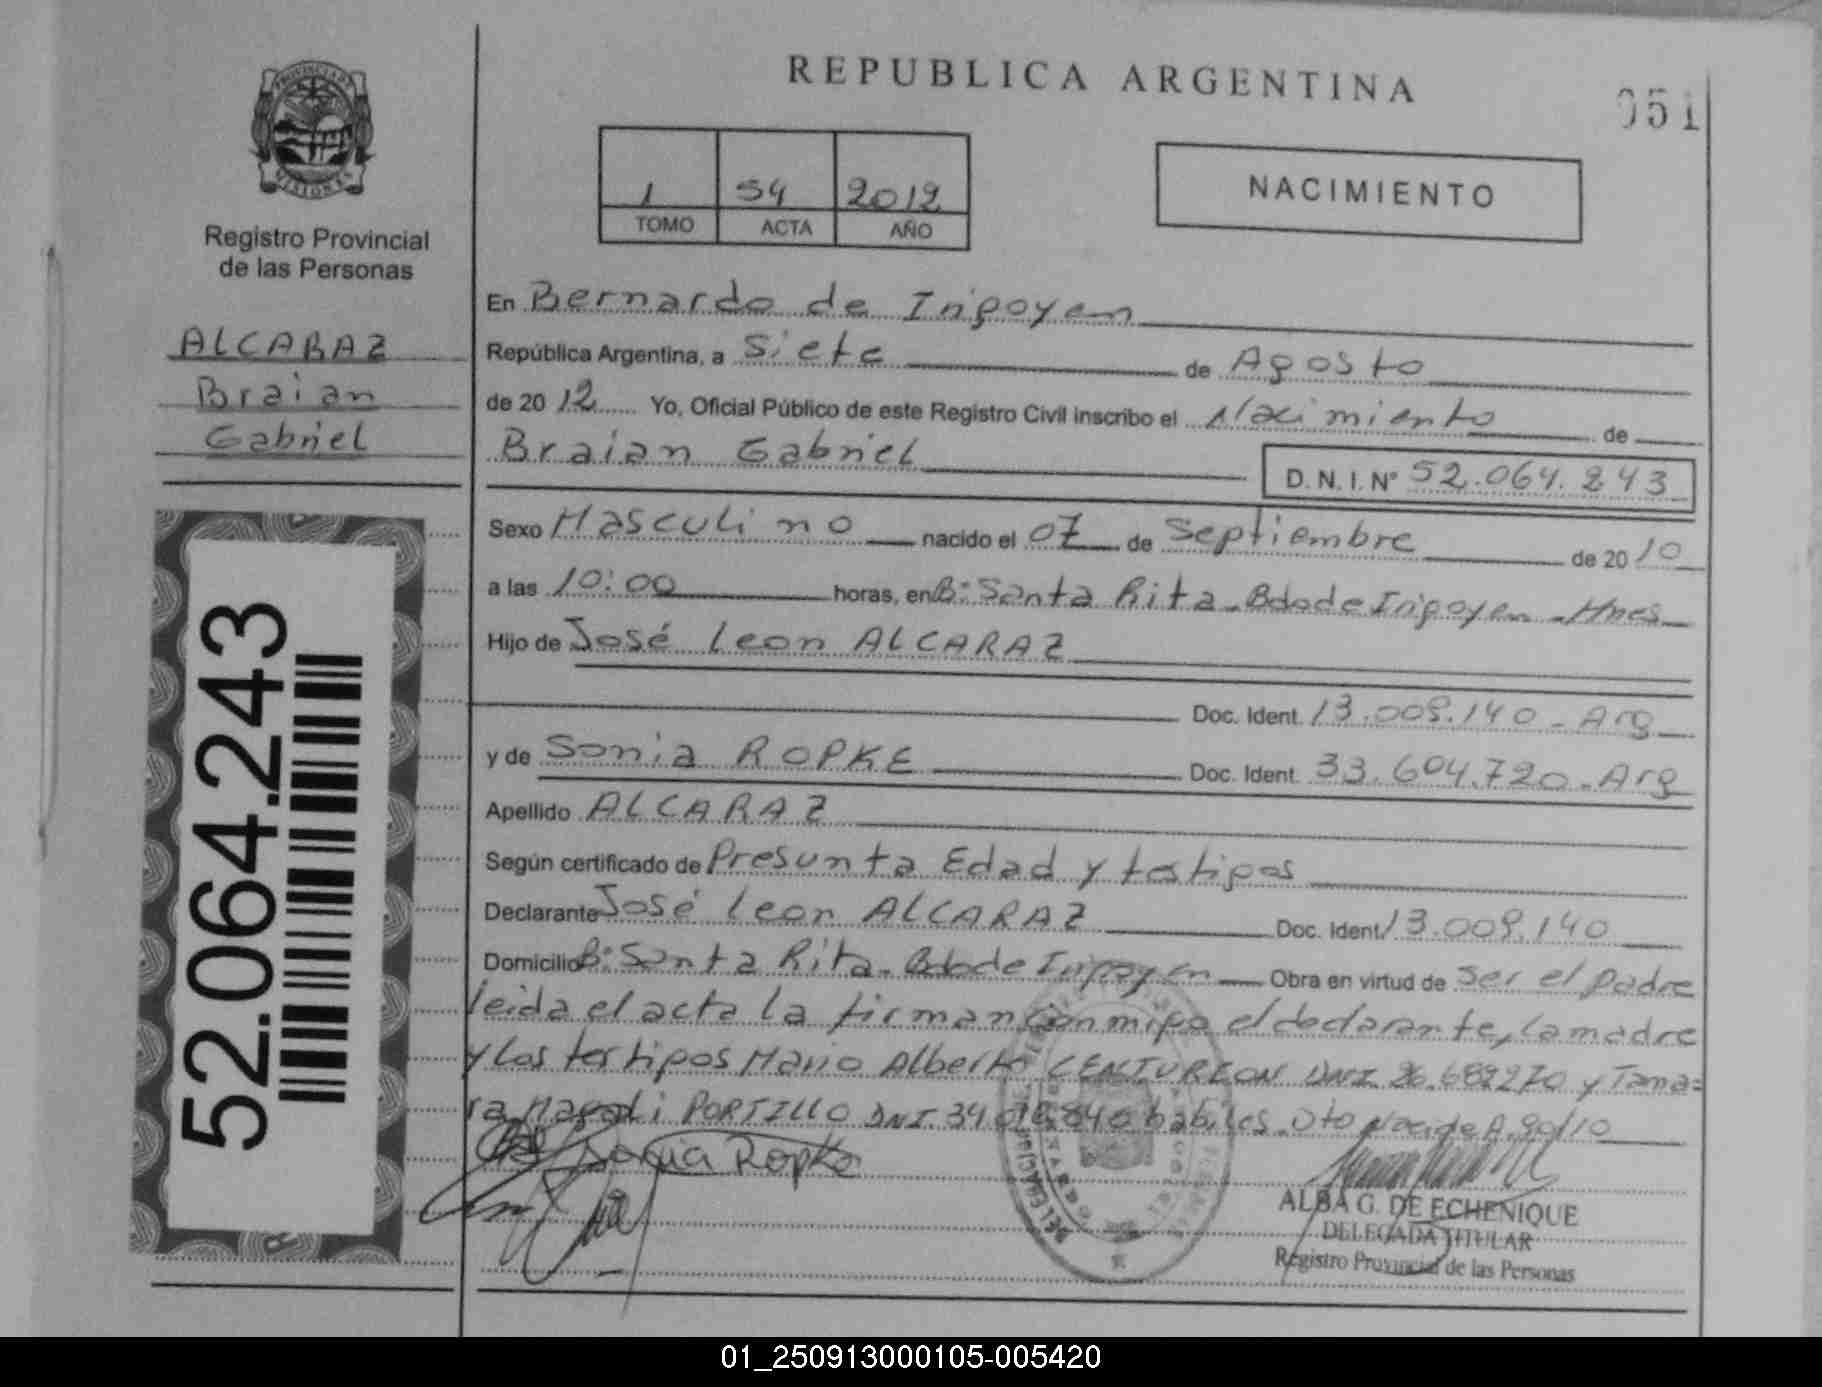 PROVINCIA DE
MISIONES
Registro Provincial
de las Personas
ALCARAZ
Braian
Gabriel
52.064.243
REPUBLICA ARGENTINA
051
1 54 2012
TOMO ACTA AÑO
NACIMIENTO
En Bernardo de Irigoyen
República Argentina, a Siete de Agosto
de 2012 Yo, Oficial Público de este Registro Civil inscribo el Nacimiento de
Braian Gabriel D.N.I. N° 52.064.243
Sexo Masculino nacido el 07 de Septiembre de 2010
a las 10:00 horas, en B: Santa Rita - Bdo de Irigoyen - Mnes
Hijo de José Leon ALCARAZ
Doc. Ident. 13.009.140 - Arg
y de Sonia ROPKE Doc. Ident. 33.604.720 - Arg
Apellido ALCARAZ
Según certificado de Presunta Edad y testigos
Declarante José Leon ALCARAZ Doc. Ident. 13.009.140
Domicilio B: Santa Rita - Bdo de Irigoyen Obra en virtud de ser el padre
leida el acta la firman conmigo el declarante, la madre
y los testigos Mario Alberto CENTURION DNI 26.689270 y Tama=
ra Magali PORTILLO DNI. 34.016.840 habiles. Dto Nac de A. 90/10
Sonia Ropke
ALBA G. DE ECHENIQUE
DELEGADA TITULAR
Registro Provincial de las Personas
01_250913000105-005420